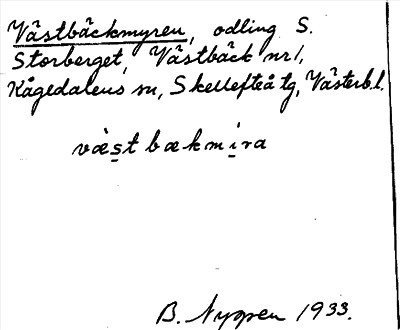 Västbäckmyren, odling S.
Storberget, Västbäck nr 1,
Kågedalens sn, Skellefteå tg, Västerb.l.
væ̀st bækmira
B. Nygren 1933.